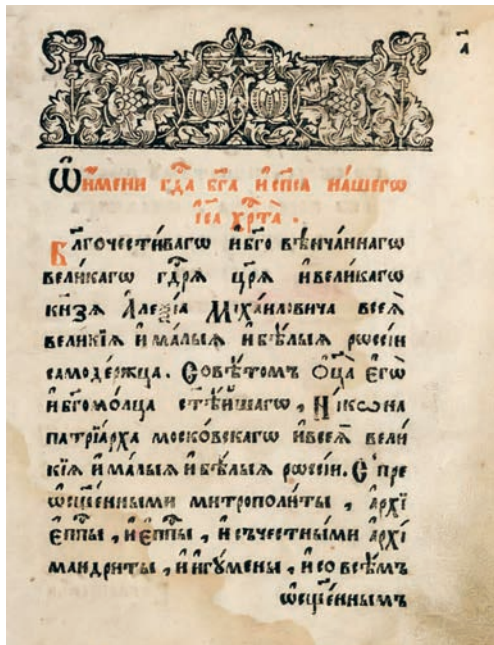 а҃
Ѡ҆ и҆мени гдⷭ҇а бг҃а и҆ сп҃са на́шегѡ
і҆са хрⷭ҇та̀.
Бл҃гоче́стиваго и҆ бг҃о вѣ́нча́ннагѡ
вели́кагѡ гдⷭ҇рѧ̀ цр҃ѧ̀ и҆ вели́кагѡ
кн҃зѧ Але́ѯі́а Мїха́иловича всеѧ̀
вели́кїѧ и҆ ма́лыѧ и҆ бѣ́лыѧ рѡсси́и
самоде́ржца. Совѣ́томъ Ѻц҃а̀ є҆гѡ̀
и҆ бг҃омо́лца ст҃ѣ́йшагѡ, Ни́кѡна
патрїа́рха моско́вскагѡ и҆ всеѧ̀ вели́
кїѧ и҆ ма́лыѧ и҆ бѣ́лыѧ рѡсси́и. С пре
ѡ҆сщ҃е́нными митрополи́ты, а҆рхї
є҆пⷭ҇пы, и҆ є҆пⷭ҇пы, и҆ съ че́стными а҆рхі
мандри́ты, и҆ и҆гу́мены, и҆ со всѣ́мъ
ѡ҆сщ҃е́ннымъ